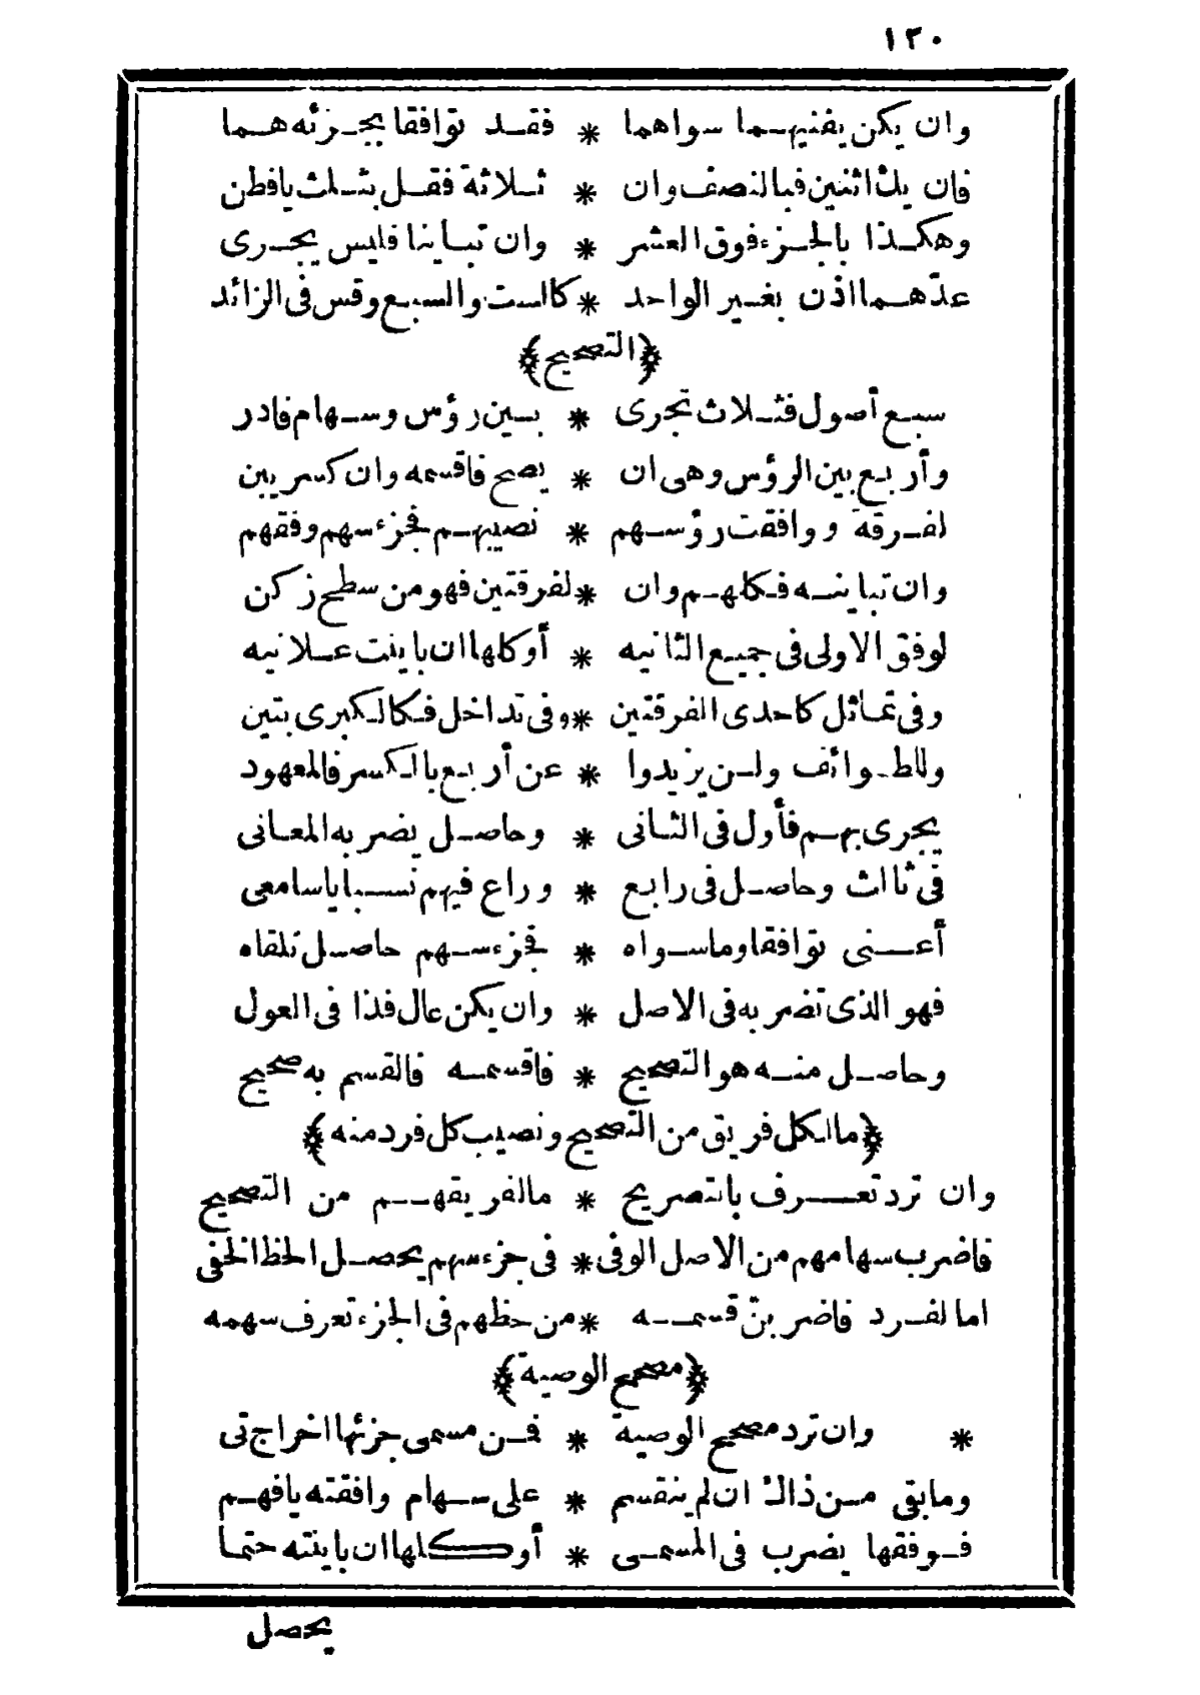 ١٣٠
وان يكن يفنيهما سواهما * فقد توافقا بجزئه هما
فان يك اثنين فبالنصف وان * ثلاثة فقل بثلث يافطن
وهكذا بالجزء فوق العشر * وان تباينا فليس يجرى
عدّهما اذن بغير الواحد * كالست والسبع وقس فى الزائد
﴿التصحيح﴾
سبع أصول فثلاث تجرى * بين رؤس وسهام فادر
وأربع بين الرؤس وهى ان * يصح فاقسمه وان كسر يبن
لفرقة ووافقت رؤسهم * نصيبهم فجزء سهم وفقهم
وان تباينه فكلهم وان * لفرقتين فهو من سطح زكن
لوفق الاولى فى جميع الثانيه * أو كلها ان باينت علانيه
وفى تماثل كاحدى الفرقتين * وفى تداخل فكالكبرى بتين
وللطوائف ولن يزيدوا * عن أربع بالكسر فالمعهود
يجرى بهم فأول فى الثانى * وحاصل يضرب المعانى
فى ثالث وحاصل فى رابع * وراع فيهم نسبا ياسامعى
أعنى توافقا وماسواه * فجزء سهم حاصل تلقاه
فهو الذى تضربه فى الاصل * وان يكن عال فذا فى العول
وحاصل منه هو التصحيح * فاقسمه فالقسم به صحيح
﴿مالكل فريق من التصحيح ونصيب كل فرد منه﴾
وان ترد تعرف بالتصريح * مالفريقهم من التصحيح
فاضرب سهامهم من الاصل الوفى * فى جزء سهم يحصل الحظ الخفى
اما لفرد فاضربنّ قسمه * من حظهم فى الجزء تعرف سهمه
﴿مصحح الوصية﴾
* وان ترد مصحح الوصية * فمن مسمى جزئها اخراج تى
ومابقى من ذالك ان لم ينقسم * على سهام وافقته يافهم
فوفقها يضرب فى المسمى * أو كلها ان باينته حتما
يحصل